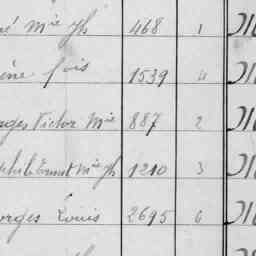 né Mie Jh 468 1
ène fois 1539 4
rges Victor Mie 887 2
Ernest Mie Jh 1210 3
orges Louis 2695 6